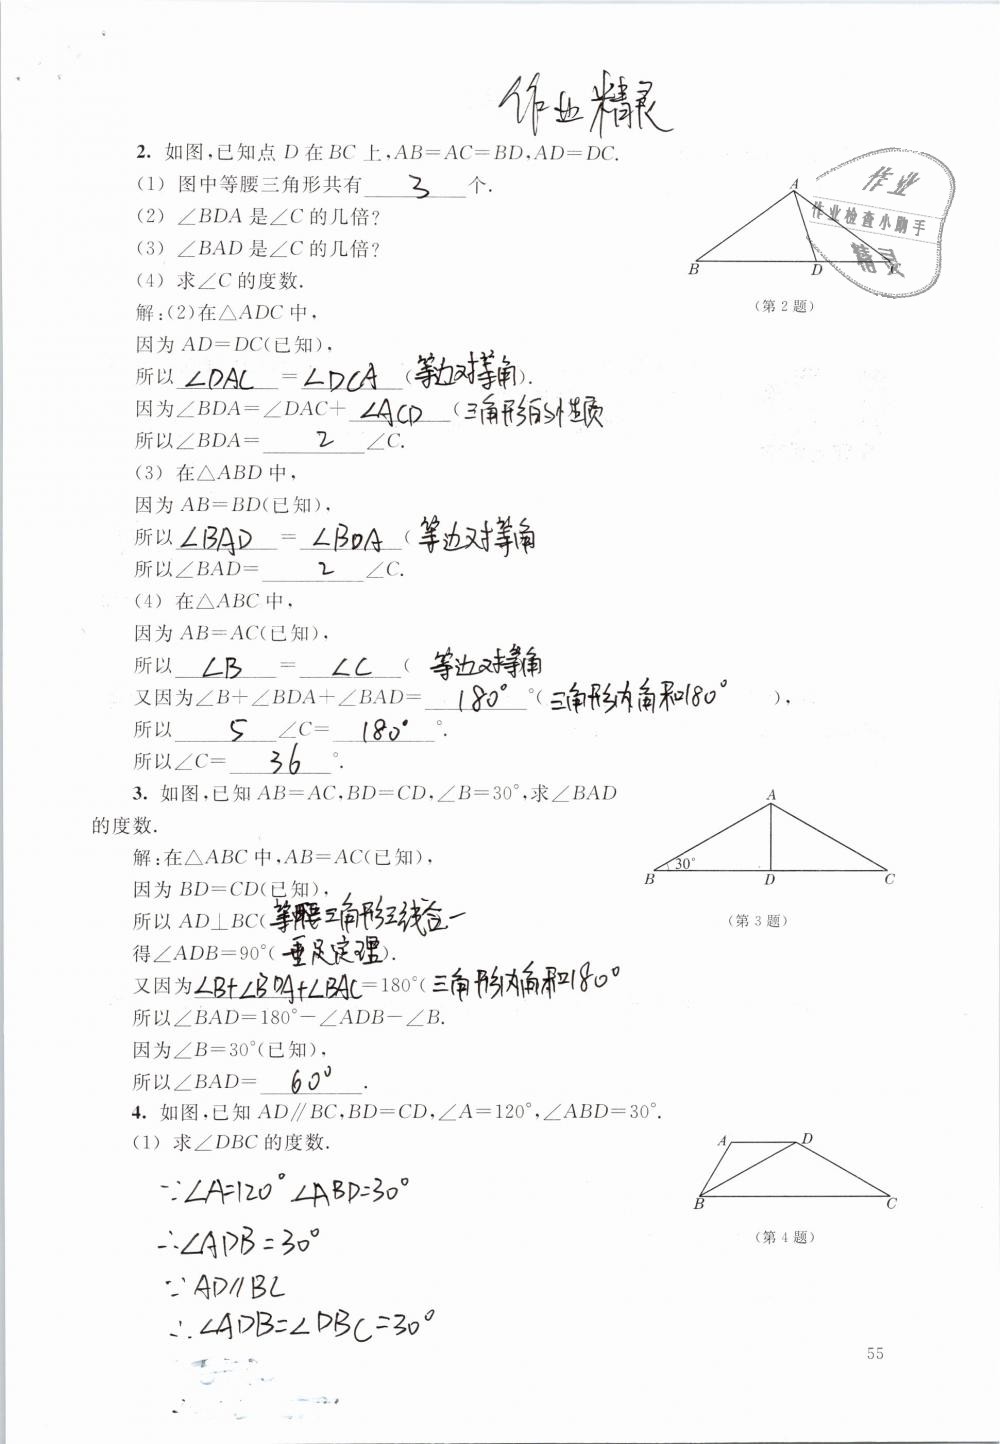 作业精灵
2. 如图,已知点 D 在 BC 上,AB=AC=BD,AD=DC.
(1) 图中等腰三角形共有 3 个.
(2) ∠BDA 是∠C 的几倍?
(3) ∠BAD 是∠C 的几倍?
(4) 求∠C 的度数.
A
B
D
作业
作业检查小助手
精灵
(第 2 题)
解:(2)在△ADC 中,
因为 AD=DC(已知),
所以 ∠DAC = ∠DCA (等边对等角).
因为∠BDA=∠DAC+ ∠ACD (三角形的外性质
所以∠BDA= 2 ∠C.
(3) 在△ABD 中,
因为 AB=BD(已知),
所以 ∠BAD = ∠BDA ( 等边对等角
所以∠BAD= 2 ∠C.
(4) 在△ABC 中,
因为 AB=AC(已知),
所以 ∠B = ∠C ( 等边对等角
又因为∠B+∠BDA+∠BAD= 180° °(三角形内角和180° ),
所以 5 ∠C= 180° °.
所以∠C= 36 °.
3. 如图,已知 AB=AC,BD=CD,∠B=30°,求∠BAD
的度数.
A
30°
B
D
C
(第 3 题)
解:在△ABC 中,AB=AC(已知),
因为 BD=CD(已知),
所以 AD⊥BC(等腰三角形三线合一
得∠ADB=90°(垂足定理).
又因为∠B+∠BDA+∠BAC=180°(三角形内角和180°
所以∠BAD=180°-∠ADB-∠B.
因为∠B=30°(已知),
所以∠BAD= 60° .
4. 如图,已知 AD∥BC,BD=CD,∠A=120°,∠ABD=30°.
(1) 求∠DBC 的度数.
A
D
B
C
(第 4 题)
∵∠A=120° ∠ABD=30°
∴∠ADB=30°
∵ AD∥BC
∴ ∠ADB=∠DBC=30°
55